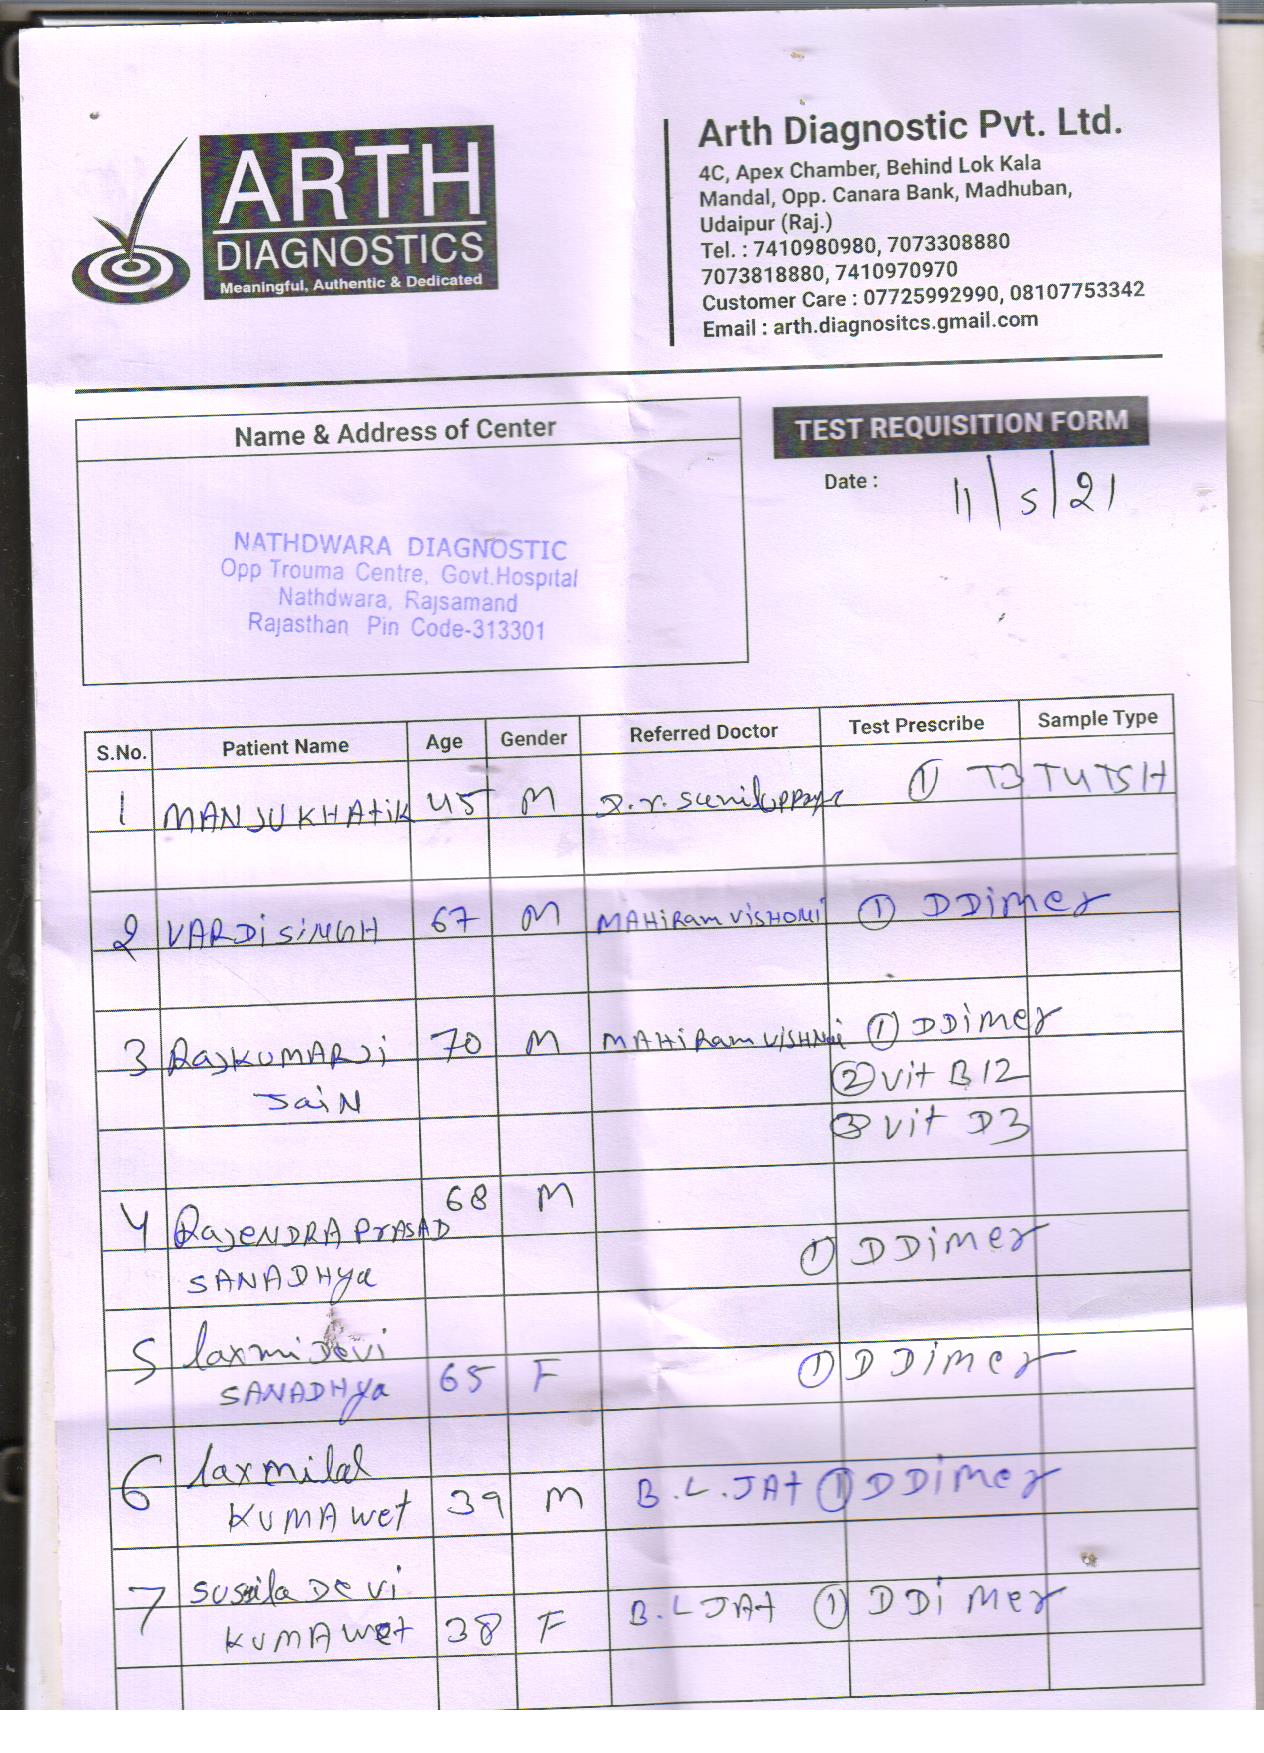 ARTH
DIAGNOSTICS
Meaningful, Authentic & Dedicated
Arth Diagnostic Pvt. Ltd.
4C, Apex Chamber, Behind Lok Kala
Mandal, Opp. Canara Bank, Madhuban,
Udaipur (Raj.)
Tel. : 7410980980, 7073308880
7073818880, 7410970970
Customer Care : 07725992990, 08107753342
Email : arth.diagnositcs.gmail.com
Name & Address of Center
TEST REQUISITION FORM
Date : 11/5/21
NATHDWARA DIAGNOSTIC
Opp Trouma Centre, Govt.Hospital
Nathdwara, Rajsamand
Rajasthan Pin Code-313301
S.No. Patient Name Age Gender Referred Doctor Test Prescribe Sample Type
1 MANJU KHAtiK 45 M D.r. ① T3 T4 TSH
2 VARDi SiNGH 67 M MAHiRam VISHONi ① DDimer
3 RajKUMAR Ji 70 M MAHiRam VISHNoi ① DDimer
JaiN ② Vit B12
③ Vit D3
4 RajENDRA PrASAD 68 M
SANADHya ① DDimer
5 laxmi DEVi
SANADHya 65 F ① DDimer
6 laxmilal
KUMAwet 39 M B.L.JAt ① DDimer
7 Susila DEVi
KUMAwet 38 F B.L JAt ① DDimer